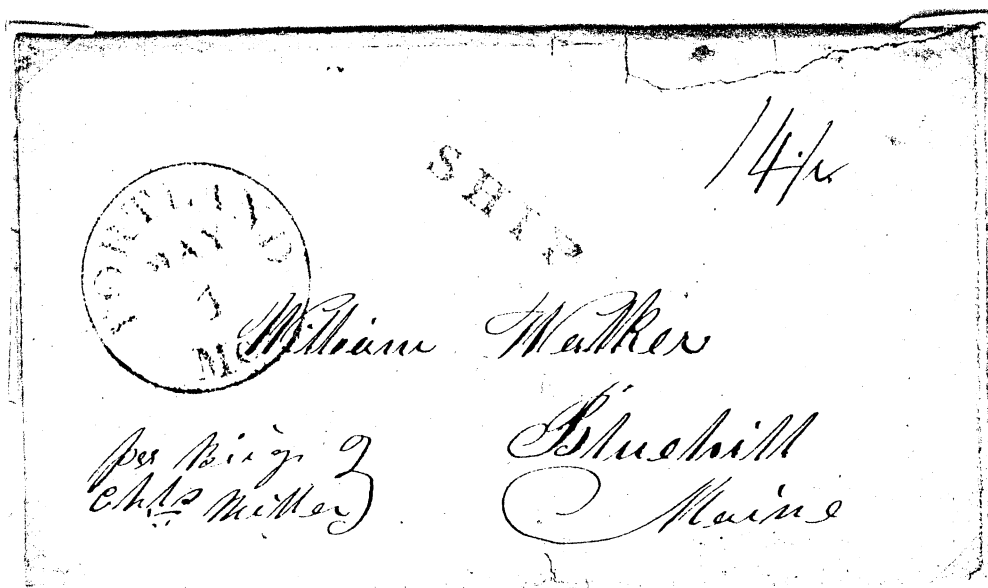 SHIP
PORTLAND
MAY
7
William Walker
Bluehill
Maine
per Brig
Chls Miller